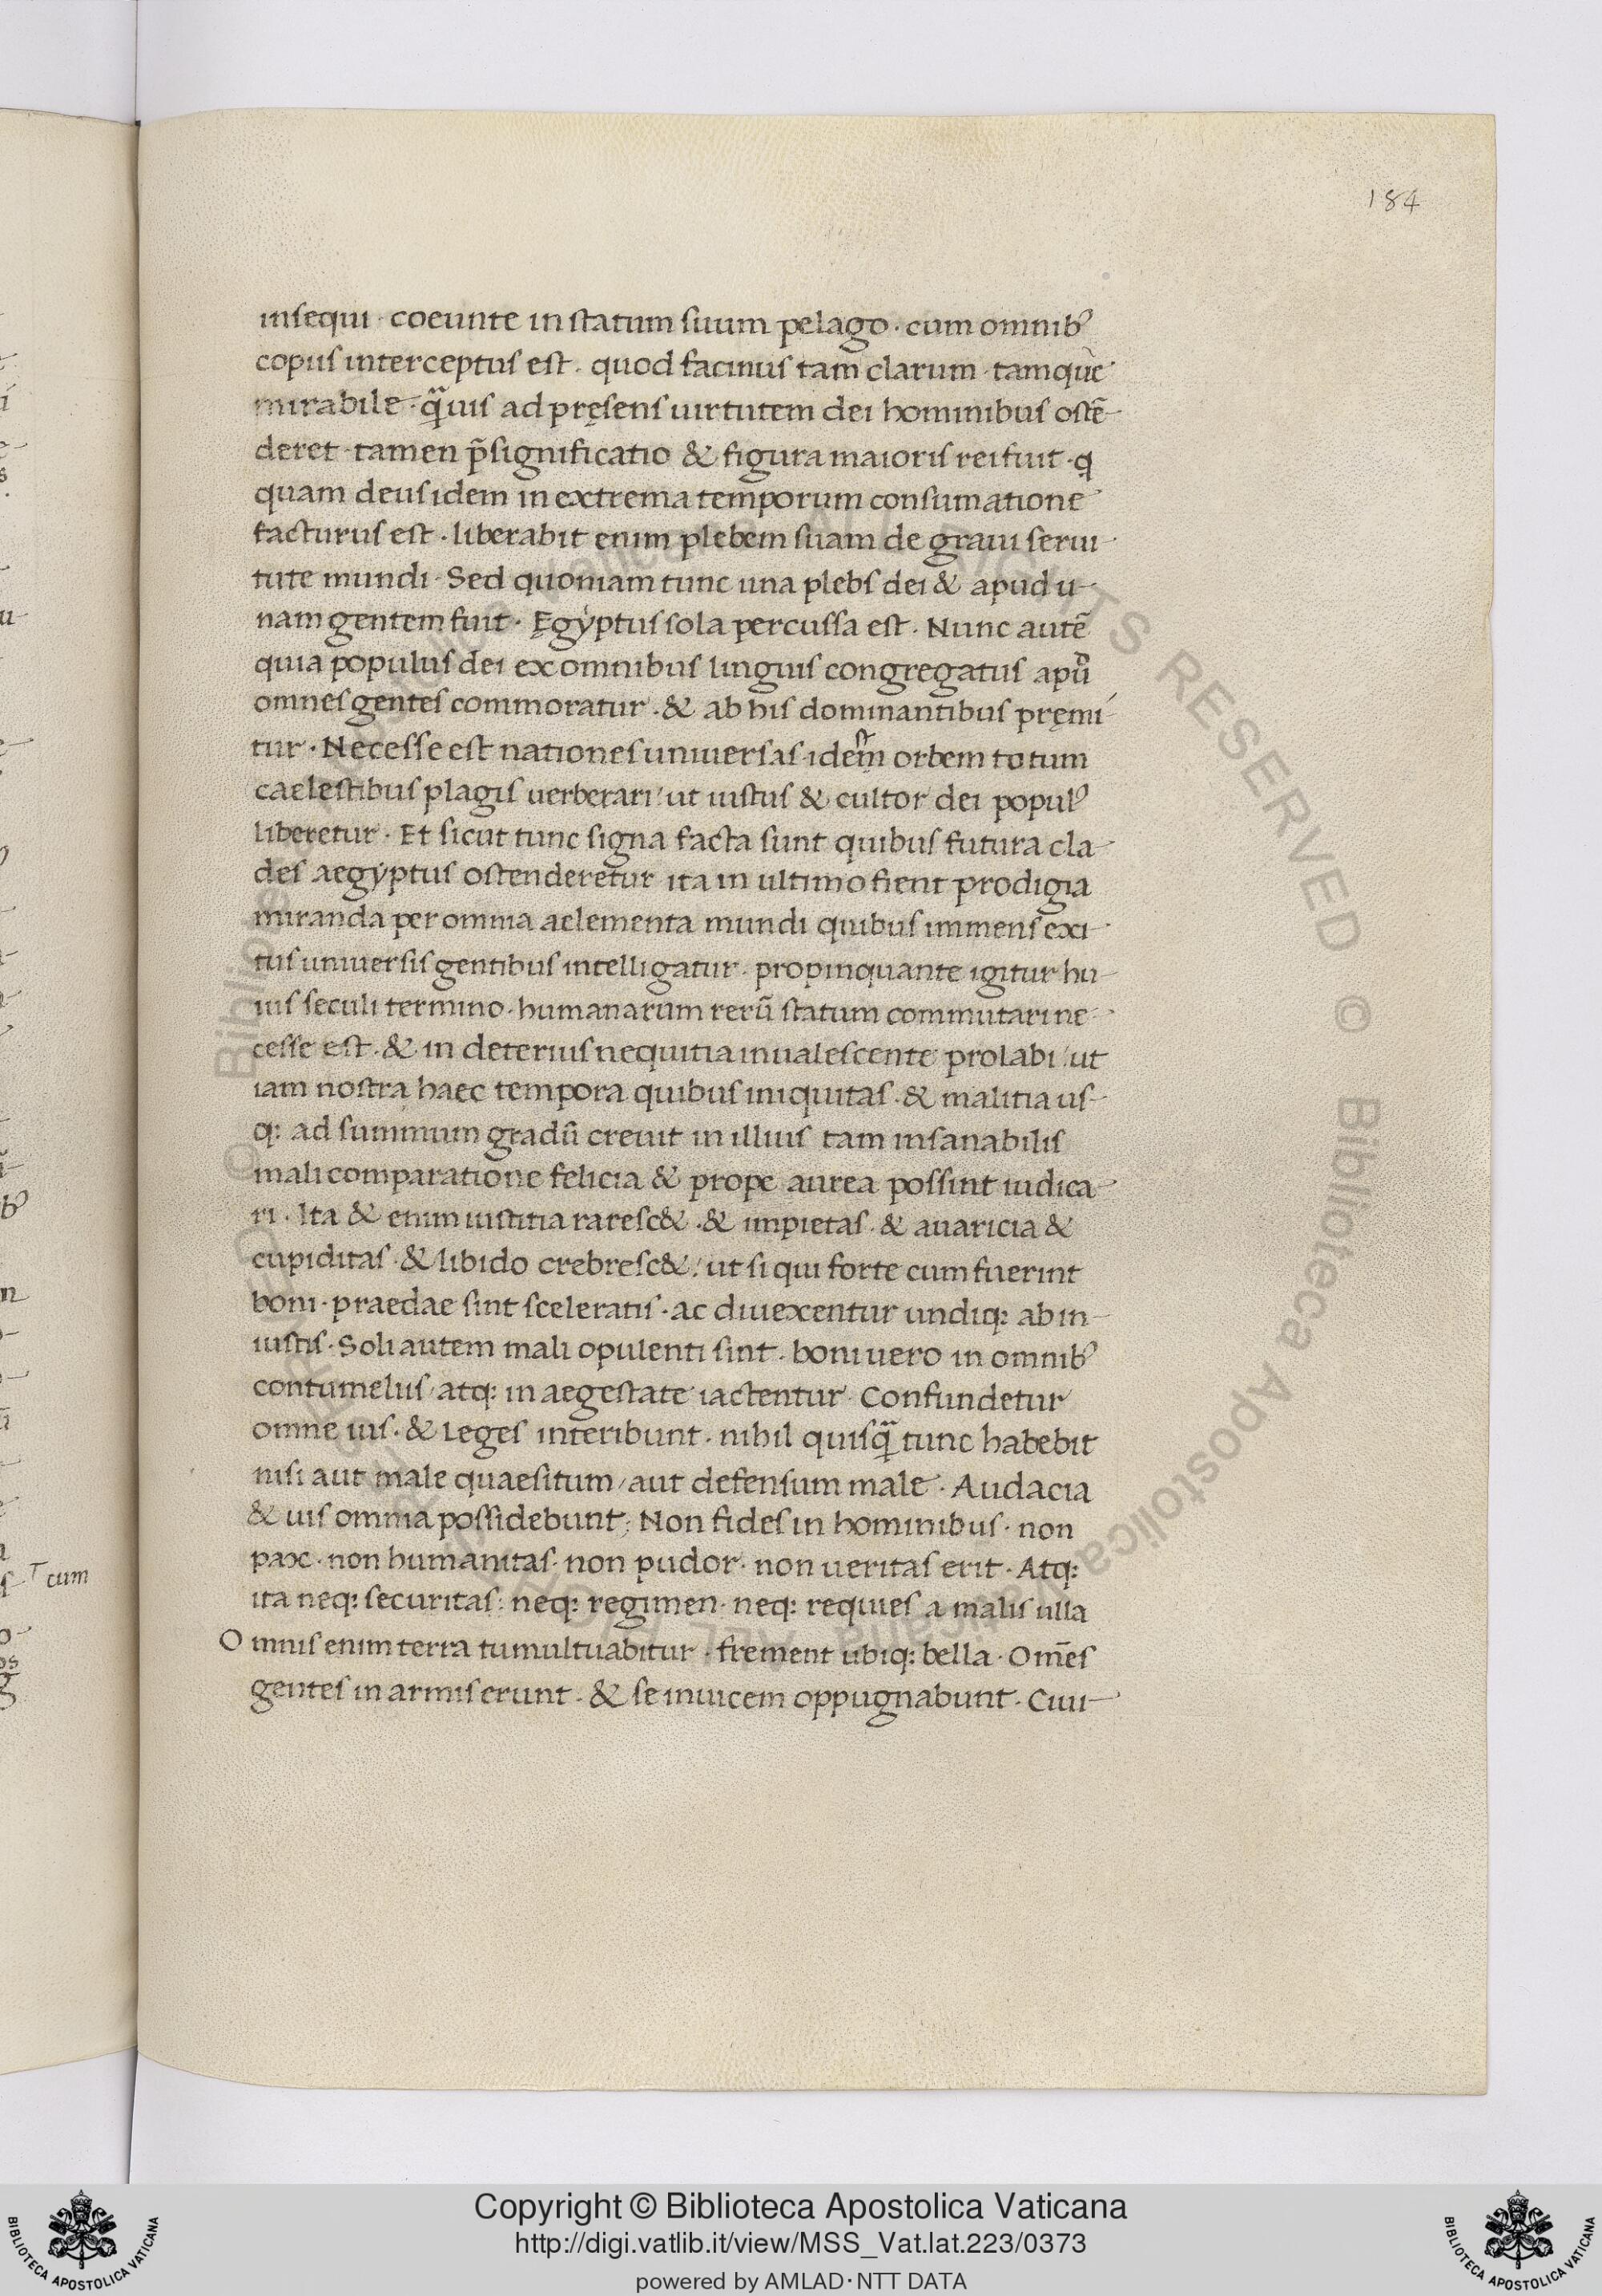 184
insequi · coeunte in statum suum pelago · cum omnibꝰ
copiis interceptus est · quod facinus tam clarum · tamque
mirabile · q̃uis ad pręsens uirtutem dei hominibus ostē-
deret · tamen p̃significatio & figura maioris rei fiut · q
quam deus idem in extrema temporum consumatione
facturus est · liberabit enim plebem suam de graui serui-
tute mundi · Sed quoniam tunc una plebs dei & apud u-
nam gentem fuit · Ęgyptus sola percussa est · Nunc autē
quia populus dei ex omnibus linguis congregatus apud
omnes gentes commoratur · & ab his dominantibus pręmi-
tur · Necesse est nationes uniuersas · idem orbem totum
caelestibus plagis uerberari / ut iustus & cultor dei populꝰ
liberetur · Et sicut tunc signa facta sunt quibus futura cla-
des aegyptus ostenderetur ita in ultimo fient prodigia
miranda per omnia aelementa mundi quibus immens exi-
tus uniuersis gentibus intelligatur · propinquante igitur hu-
ius seculi termino · humanarum rerū statum commutari ne-
cesse est · & in deterius nequitia inualescente prolabi / ut
iam nostra haec tempora quibus iniquitas · & malitia us-
q: ad summum gradū creuit in illius tam insanabilis
mali comparatione felicia & prope aurea possint iudica-
ri · Ita & enim iustitia raresc& · & impietas · & auaricia &
cupiditas · & libido crebresc& / ut si qui forte cum fuerint
boni · praedae sint sceleratis · ac diuexentur undiq: ab in-
iustis · Soli autem mali opulenti sint · boni uero in omnibꝰ
contumeliis / atq: in aegestate iactentur · Confundetur
omne ius · & Leges interibunt · nihil quisq̃ tunc habebit
nisi aut male quaesitum / aut defensum male · Audacia
& uis omnia possidebunt; Non fides in hominibus · non
pax · non humanitas · non pudor · non ueritas erit · Atq:
ita neq: securitas: neq: regimen · neq: requies a malis ulla
Omnis enim terra tumultuabitur · frement ubiq: bella · Om̄es
gentes in armis erunt · & se inuicem oppugnabunt · Ciui-
cum
Copyright © Biblioteca Apostolica Vaticana
http://digi.vatlib.it/view/MSS_Vat.lat.223/0373
powered by AMLAD·NTT DATA
BIBLIOTECA APOSTOLICA VATICANA
BIBLIOTECA APOSTOLICA VATICANA